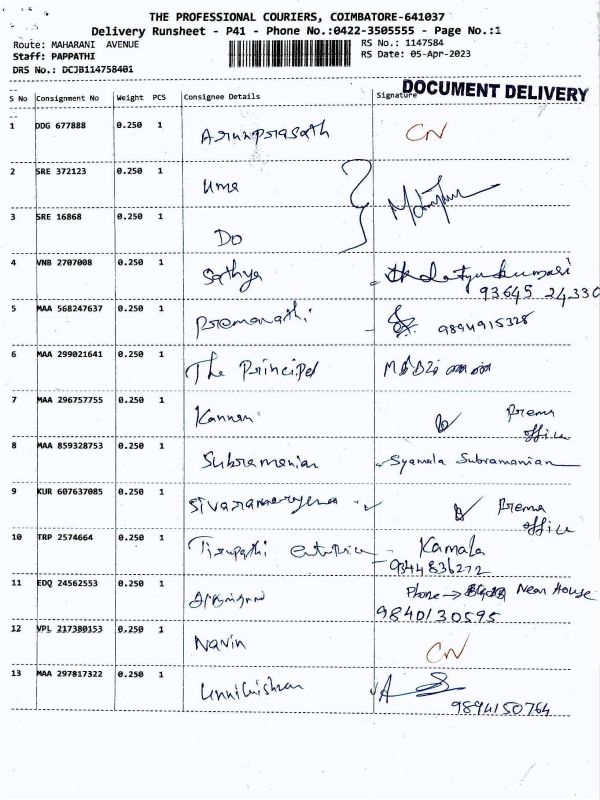 THE PROFESSIONAL COURIERS, COIMBATORE-641037
Delivery Runsheet - P41 - Phone No.:0422-3505555 - Page No.:1
Route: MAHARANI AVENUE RS No.: 1147584
Staff: PAPPATHI RS Date: 05-Apr-2023
DRS No.: DCJB114758401
DOCUMENT DELIVERY
S No Consignment No Weight PCS Consignee Details Signature
1 DDG 677888 0.250 1 Arunprasath CN
2 SRE 372123 0.250 1 Uma
3 SRE 16868 0.250 1 Do
4 VNB 2707008 0.250 1 Sathya
93645 24330
5 MAA 568247637 0.250 1 Premavathi 9894915328
6 MAA 299021641 0.250 1 The Principal
7 MAA 296757755 0.250 1 Kannan Prema
office
8 MAA 859328753 0.250 1 Subramanian Syamala Subramanian
9 KUR 607637085 0.250 1 Prema
office
10 TRP 2574664 0.250 1 Tirupathi Kamala
9344836272
11 EDQ 24562553 0.250 1 Phone → Near House
9840130595
12 VPL 217380153 0.250 1 Navin CN
13 MAA 297817322 0.250 1 Unnikrishnan
9894150764